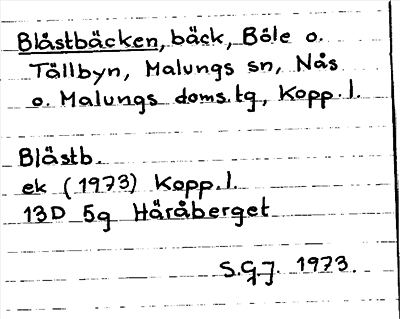 Blåstbäcken, bäck, Böle o.
Tällbyn, Malungs sn, Nås
o. Malungs doms.tg, Kopp.l.
Blästb.
ek (1973) Kopp.l.
13D 5g Häråberget
S.G.J. 1973.